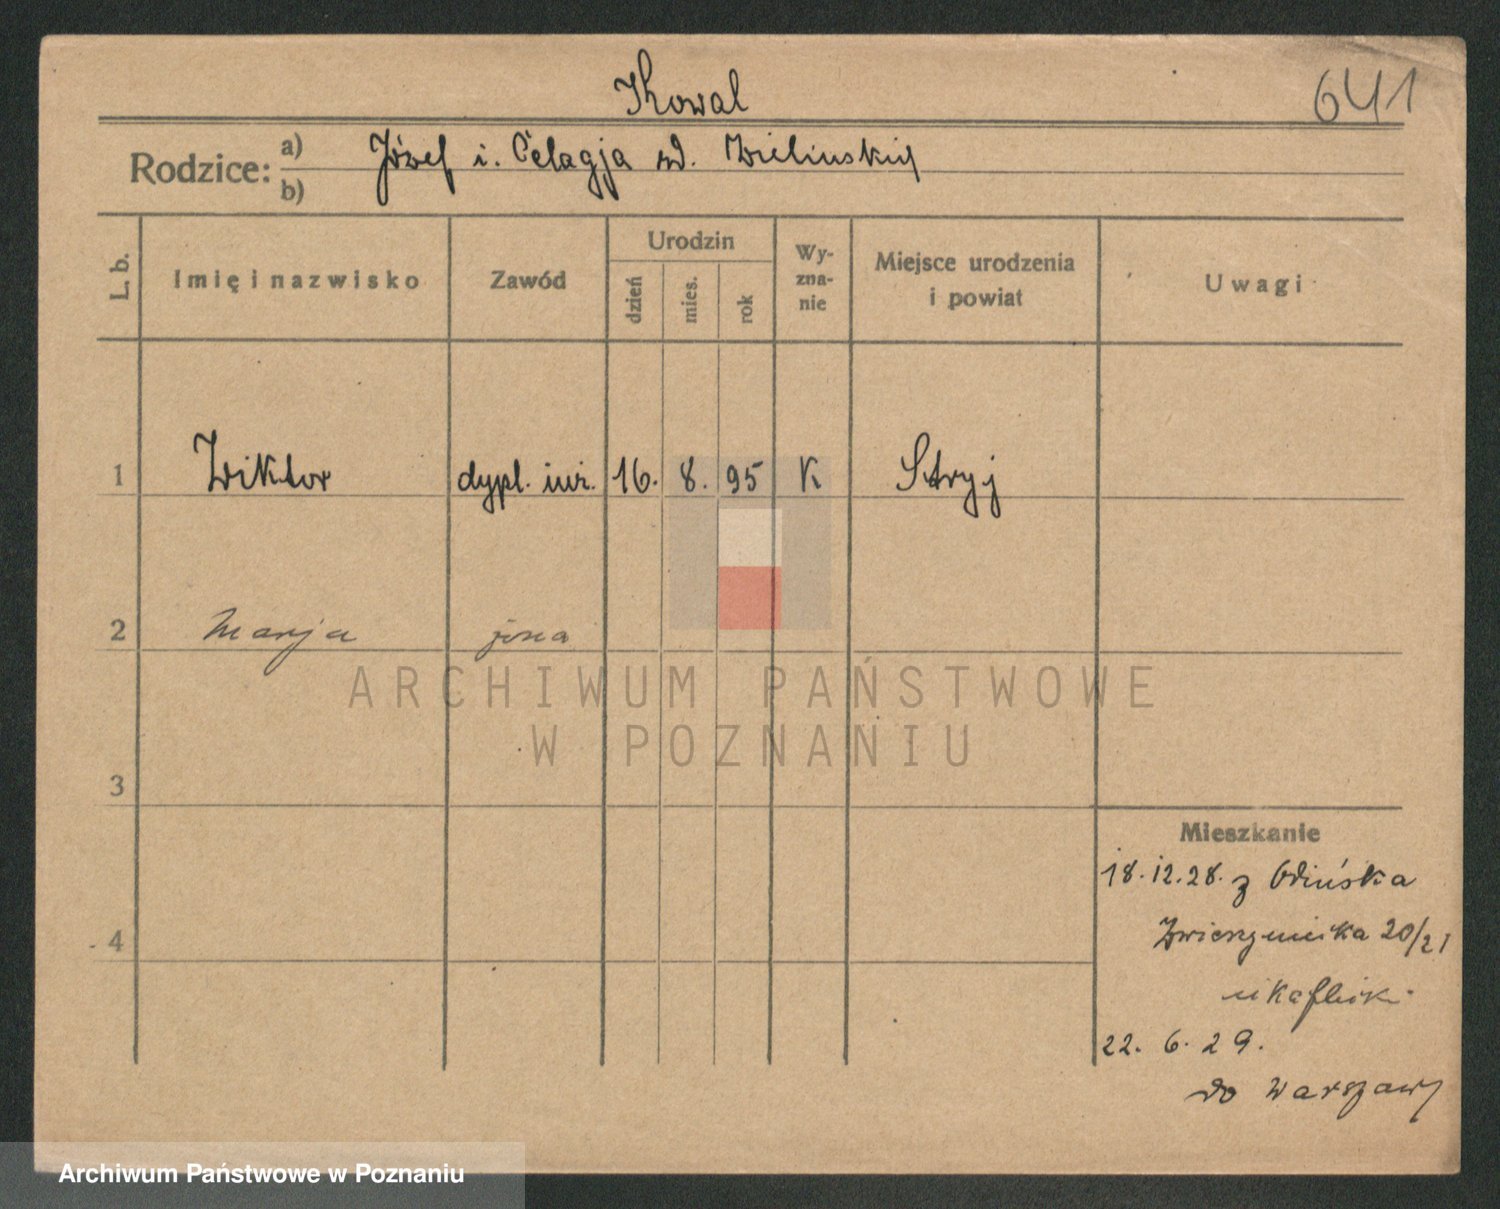 Kowal
641
Rodzice: a) Józef i. Pelagja zd. Zielińskich
b)
L. b.
Imię i nazwisko
Zawód
Urodzin
dzień
mies.
rok
Wy-
zna-
nie
Miejsce urodzenia
i powiat
Uwagi
1 Wiktor dypl. inż. 16. 8. 95 K Stryj
2 Marja żona
3
Mieszkanie
18.12.28. z
Zwierzyniecka 20/21
4
22. 6. 29.
do Warszawy
ARCHIWUM PAŃSTWOWE
W POZNANIU
Archiwum Państwowe w Poznaniu